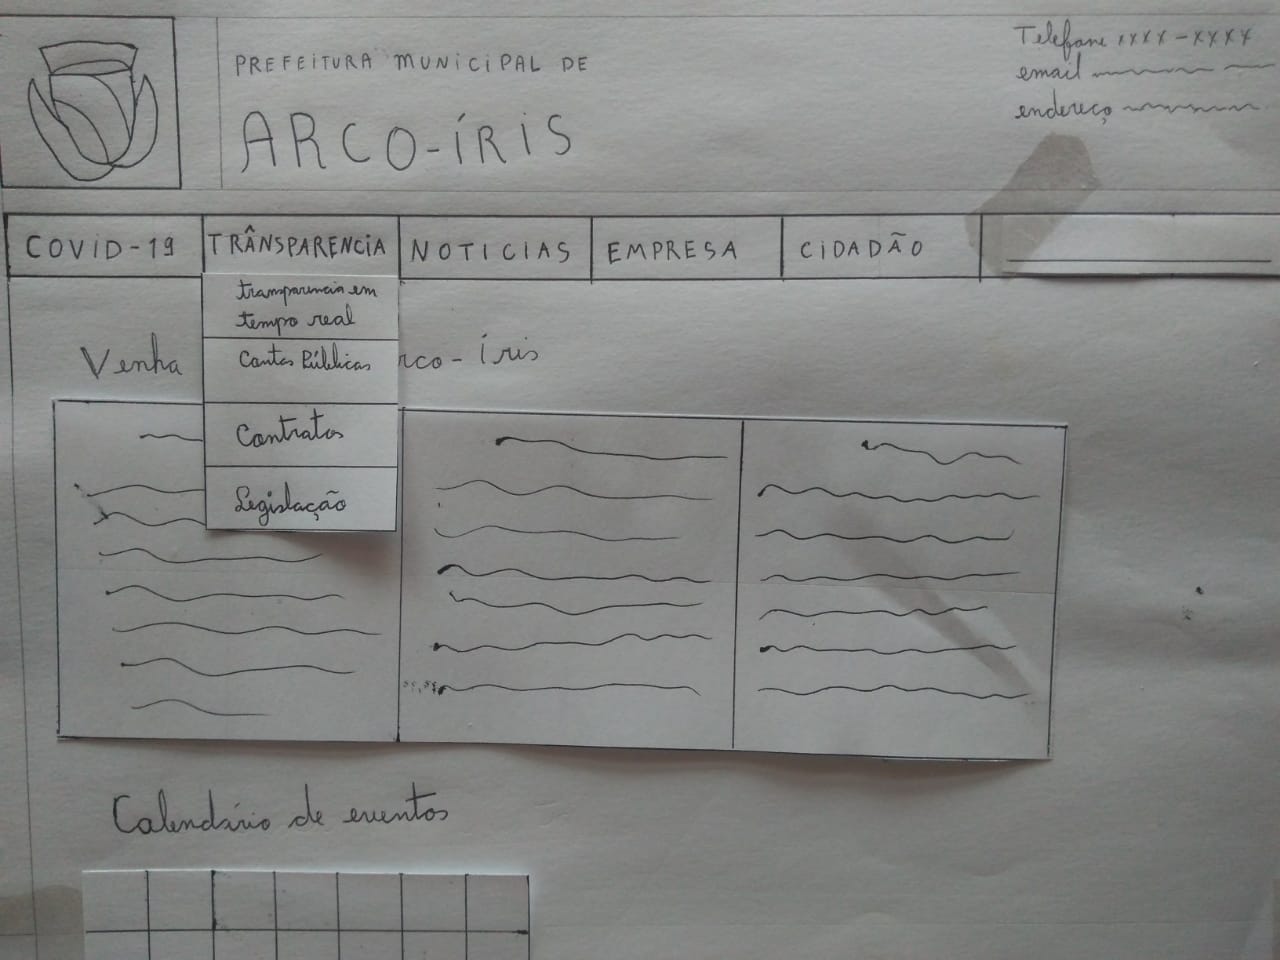 PREFEITURA MUNICIPAL DE
ARCO-ÍRIS
Telefone xxxx-xxxx
email
endereço
COVID-19
TRÂNSPARENCIA
NOTICIAS
EMPRESA
CIDADÃO
transparencia em
tempo real
Contas Públicas
Contratos
Legislação
Venha rco-íris
Calendário de eventos